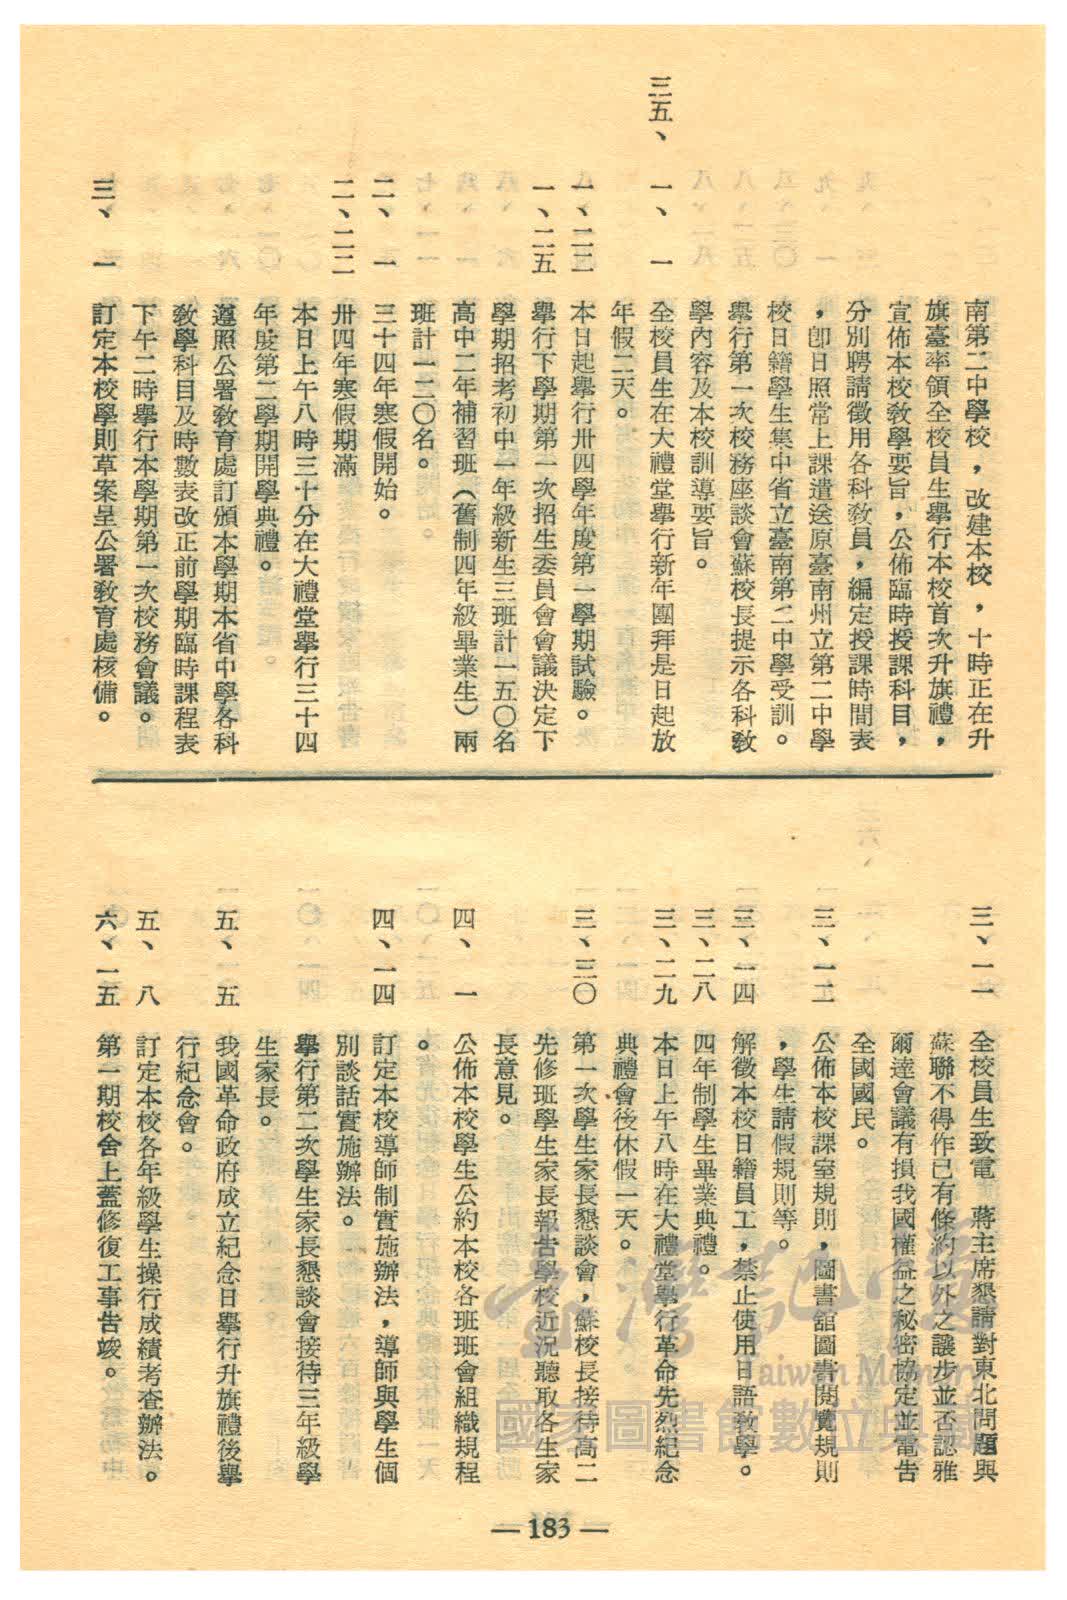 南第二中學校，改建本校，十時正在升
旗臺率領全校員生舉行本校首次升旗禮，
宣佈本校教學要旨，公佈臨時授課科目，
分別聘請徵用各科教員，編定授課時間表
，卽日照常上課遣送原臺南州立第二中學
校日籍學生集中省立臺南第二中學受訓。
舉行第一次校務座談會蘇校長提示各科教
學內容及本校訓導要旨。
三五、 一、 一 全校員生在大禮堂舉行新年團拜是日起放
年假二天。
一、二三 本日起舉行卅四學年度第一學期試驗。
一、二五 舉行下學期第一次招生委員會會議決定下
學期招考初中一年級新生三班計一五〇名
高中二年補習班（舊制四年級畢業生）兩
班計一二〇名。
二、 一 三十四年寒假開始。
二、二二 卅四年寒假期滿
本日上午八時三十分在大禮堂舉行三十四
年度第二學期開學典禮。
遵照公署教育處訂頒本學期本省中學各科
教學科目及時數表改正前學期臨時課程表
下午二時舉行本學期第一次校務會議。
三、 一 訂定本校學則草案呈公署教育處核備。
三、一一 全校員生致電　蔣主席懇請對東北問題與
蘇聯不得作已有條約以外之讓步並否認雅
爾達會議有損我國權益之秘密協定並電告
全國國民。
三、一二 公佈本校課室規則，圖書舘圖書閱覽規則
，學生請假規則等。
三、一四 解徵本校日籍員工，禁止使用日語教學。
三、二八 四年制學生畢業典禮。
三、二九 本日上午八時在大禮堂舉行革命先烈紀念
典禮會後休假一天。
三、三〇 第一次學生家長懇談會，蘇校長接待高二
先修班學生家長報告學校近況聽取各生家
長意見。
四、 一 公佈本校學生公約本校各班班會組織規程
。
四、一四 訂定本校導師制實施辦法，導師與學生個
別談話實施辦法。
舉行第二次學生家長懇談會接待三年級學
生家長。
五、 五 我國革命政府成立紀念日舉行升旗禮後舉
行紀念會。
五、 八 訂定本校各年級學生操行成績考查辦法。
六、一五 第一期校舍上蓋修復工事告竣。
— 183 —
臺灣記憶
Taiwan Memory
國家圖書館數位典藏